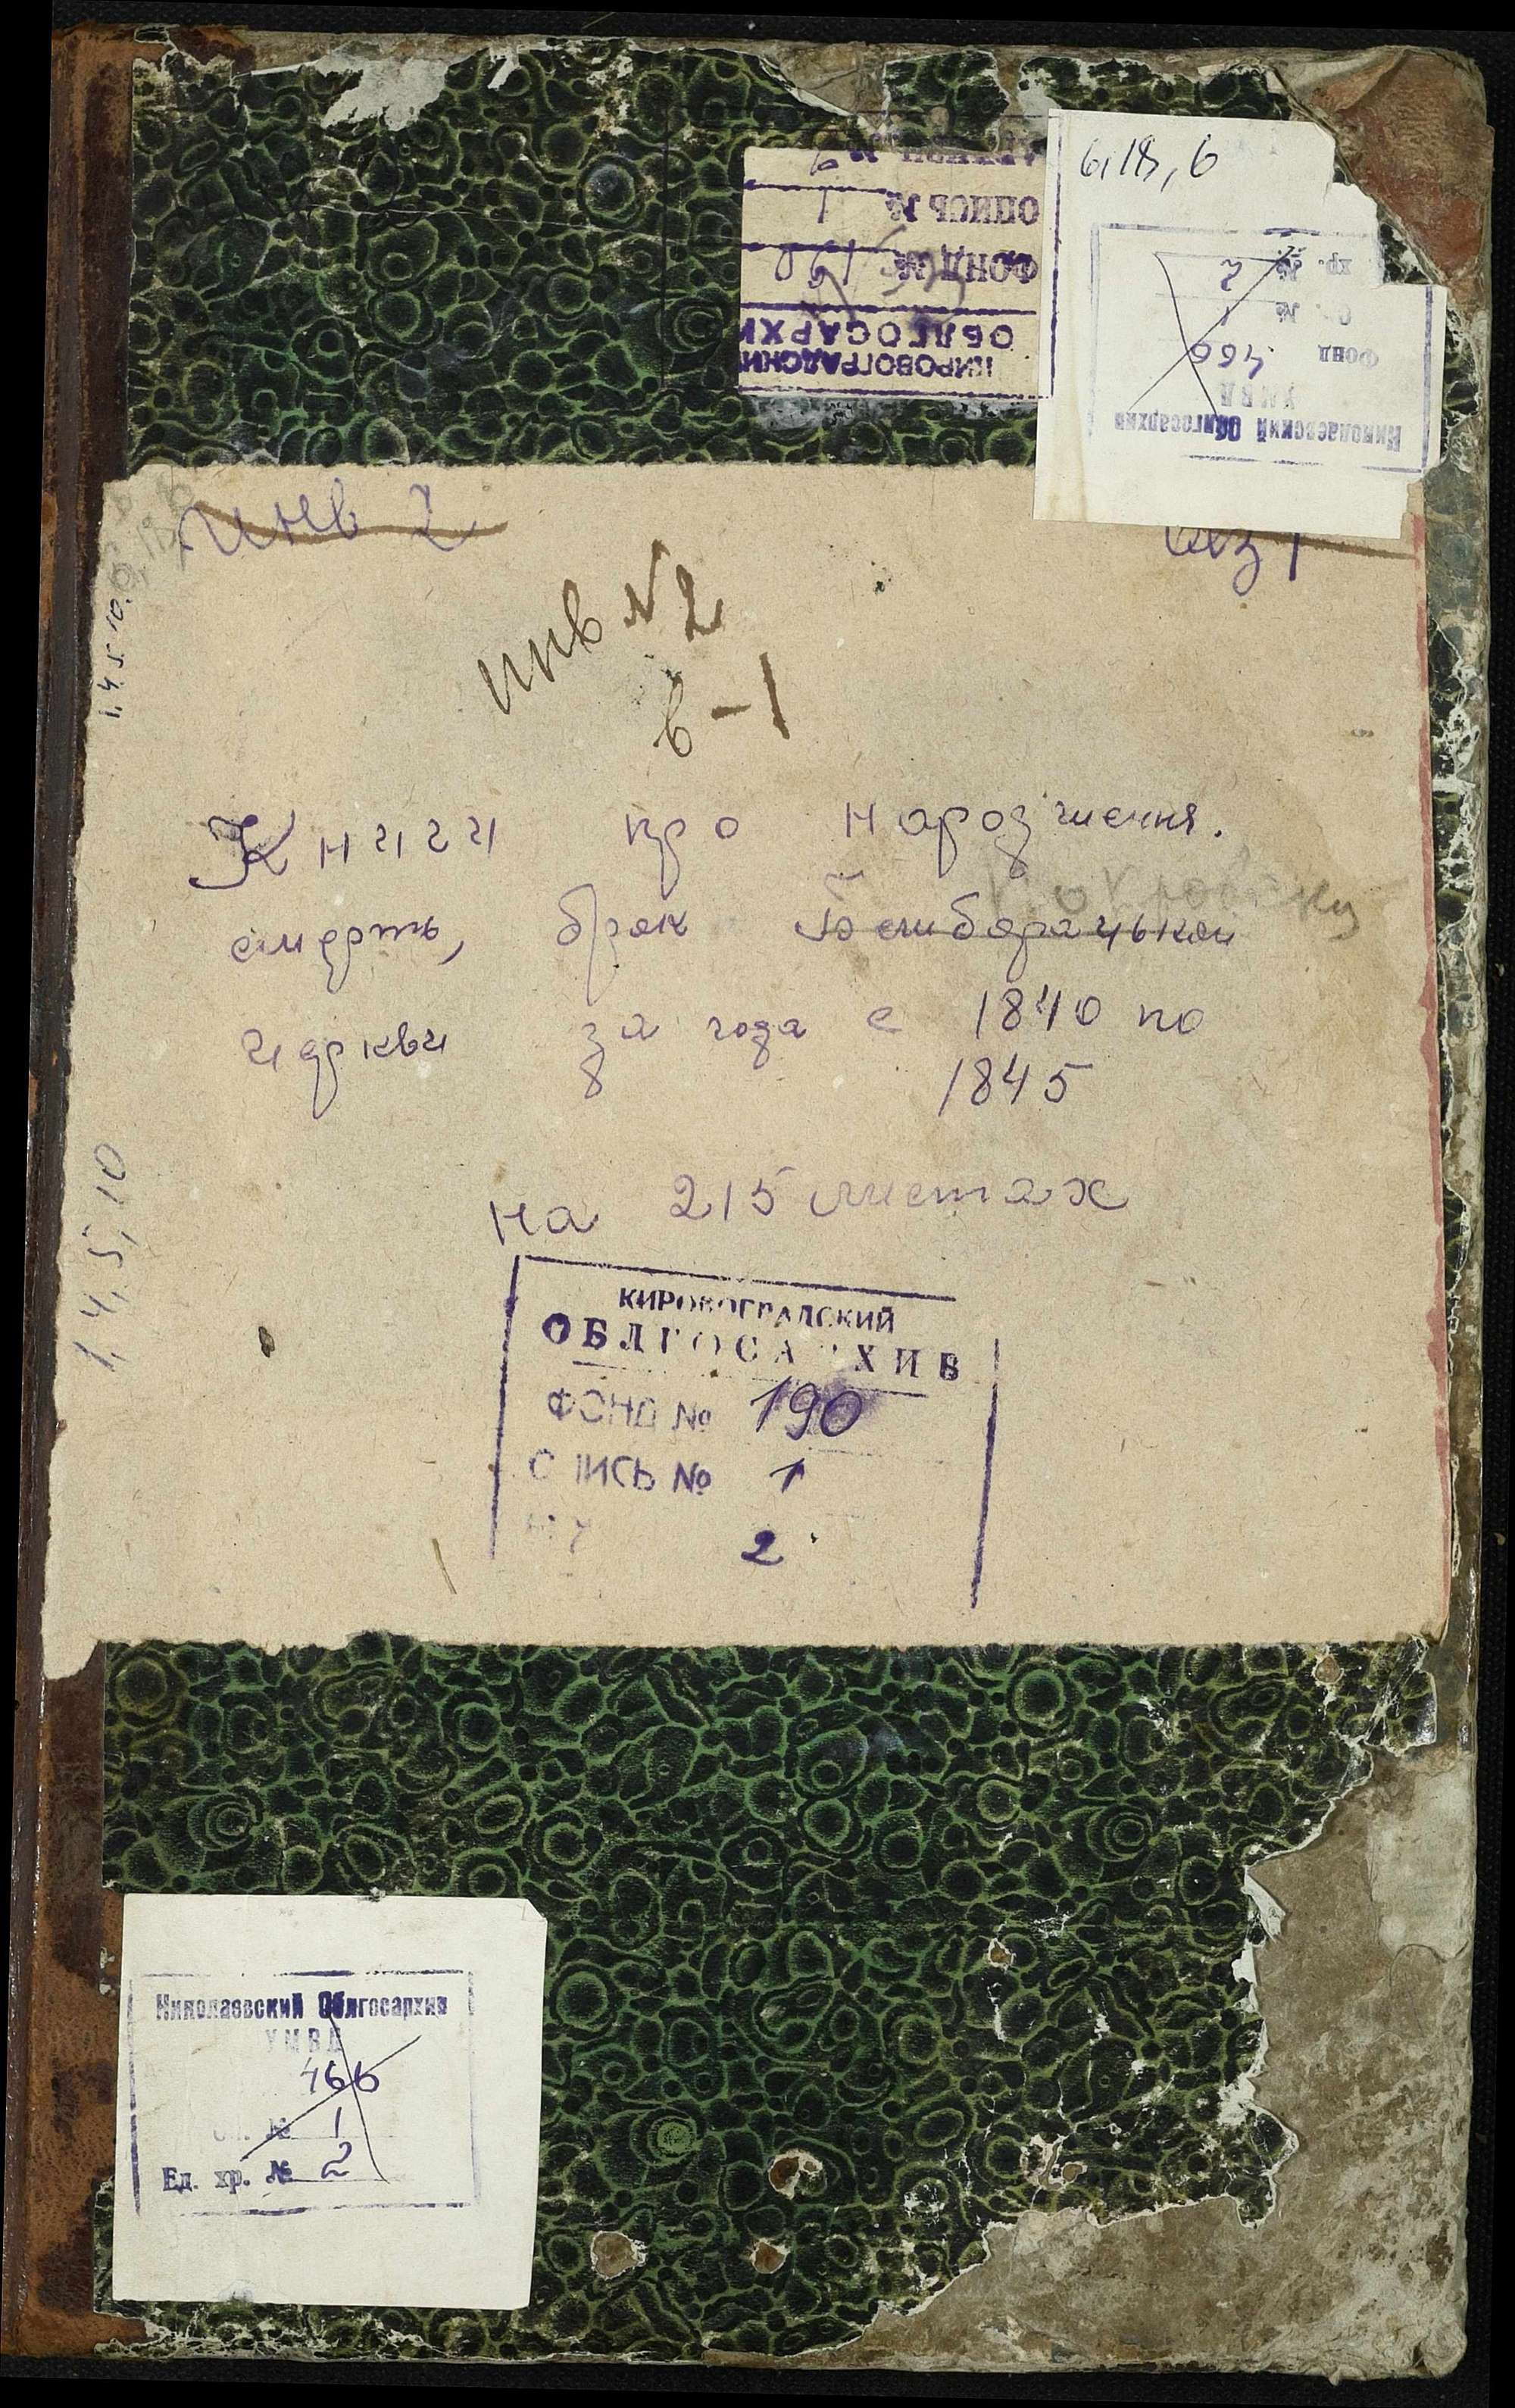 6,18,6
ОПИСЬ № 1
ФОНД № 190
ОБЛГОСАРХИ
КИРОВОГРАДСКИ
хр. № 2
№ 1
Фонд 466
УМВД
Николаевский Облгосархив
Инв 2
инв № 2
в-1
1, 4, 5, 10.
Книги про народження.
смерть, брак
церкви за года с 1840 по
1845
1, 4, 5, 10
на 215 листах
КИРОВОГРАДСКИЙ
ОБЛГОСАРХИВ
ФОНД № 190
ОПИСЬ № 1
2
Николаевский Облгосархив
УМВД
466
№ 1
Ед. хр. № 2